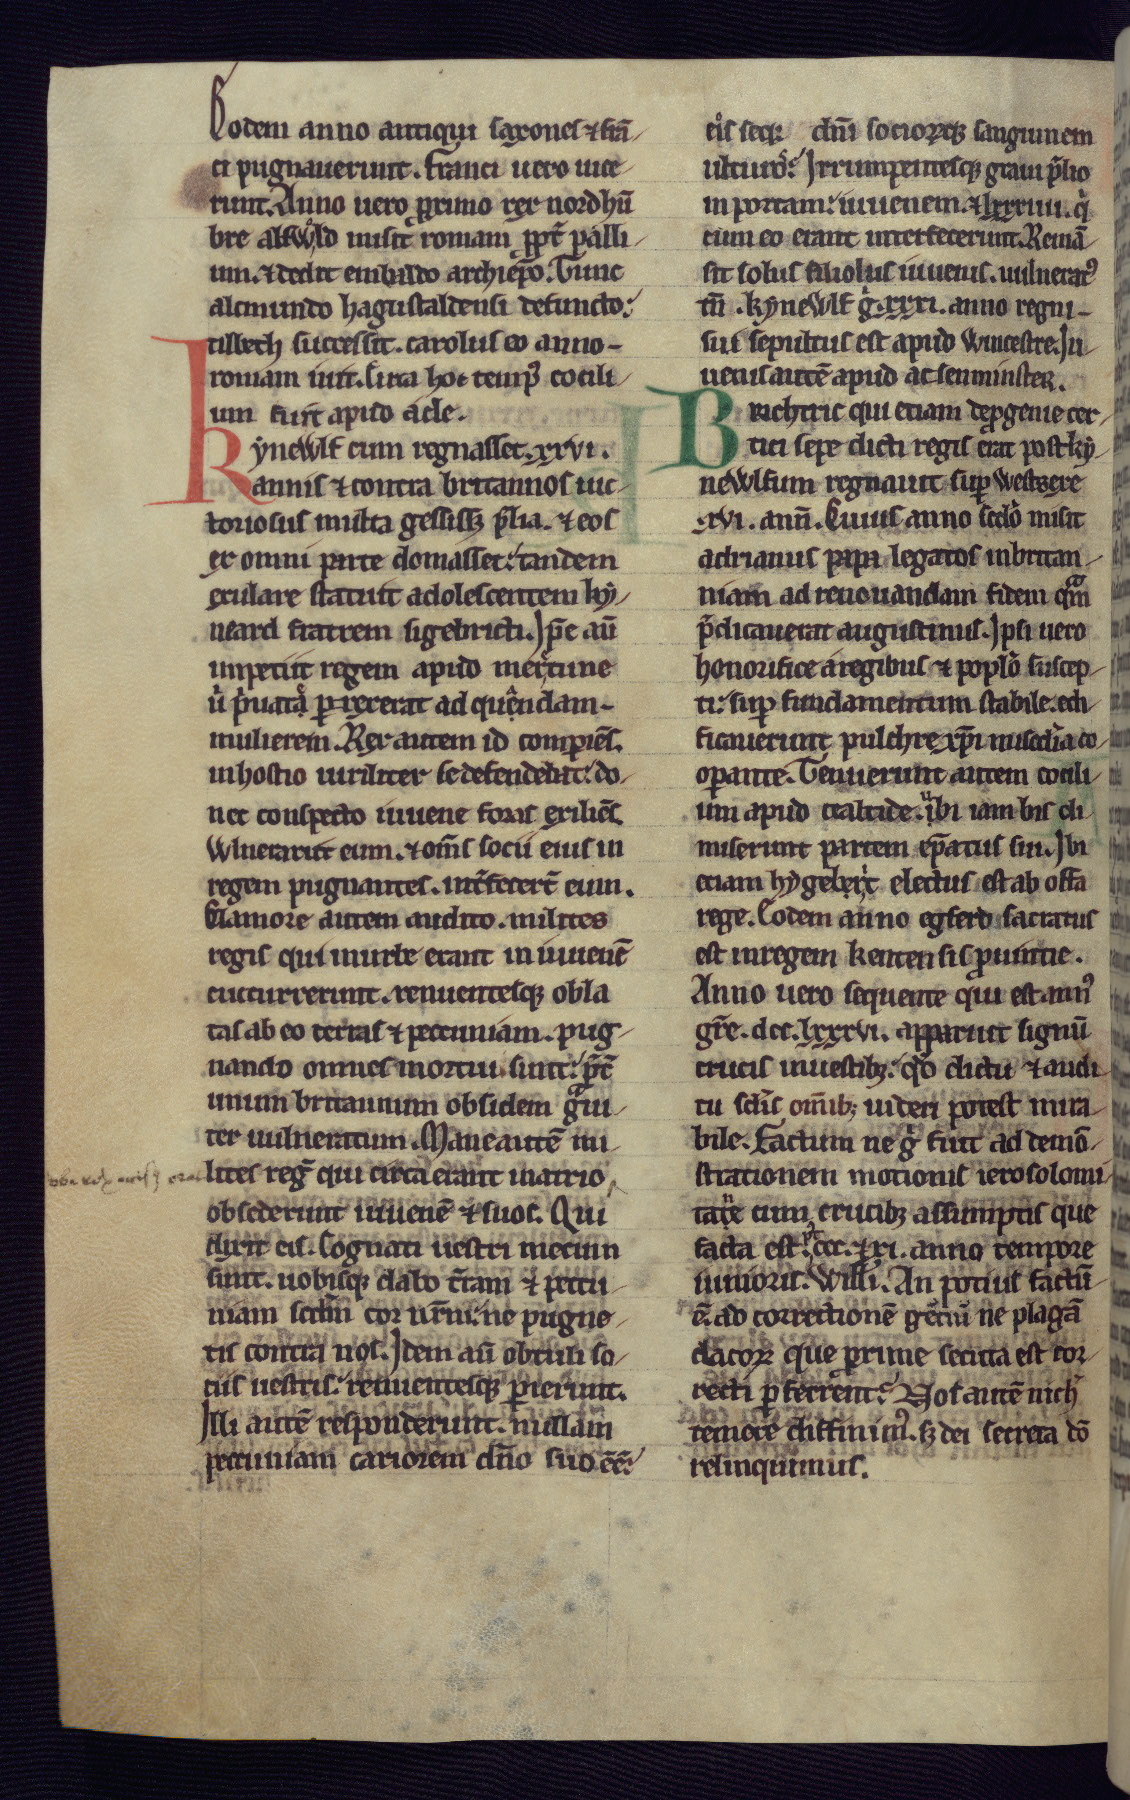 Eodem anno antiqui saxones ⁊ frā
ci pugnauerunt. Franci uero uice
runt. Anno uero primo rex nordhū
bre alfwold misit romam ꝓpt̄ palli
um. ⁊ dedit embaldo archiep̄o. Tunc
alcmundo hagustaldensi defuncto:
tilbech successit. carolus eo anno
romam iuit. Circa hoc temp᷒ cocili
um fuit apud acle.
Kynewlf cum regnasset .xxvi.
annis ⁊ contra britannos uic
toriosus multa gessisꝫ p̄lia. ⁊ eos
ex omni parte domasset: tandem
exulare statuit adolescentem ky
neard fratrem sigebricti. Ipe aū
impetiit regem apud mertune
ꝑrexerat ad quendam
mulierem. Rex autem id compiēs
in hostio uiriliter se defendebat: do
nec conspecto iuuene foras exiliēs
wlnerauit eum. ⁊ om̄s socii eius in
regem pugnantes. int̄fecert̄ eum.
Clamore autem audito. milites
regis qui in urbe erant in iuuenē
cucurrerunt. renuentesqꝫ obla
tas ab eo terras ⁊ pecuniam. pug
nando omnes mortui sunt: p̄t̄
unum britannum obsidem gͣui
ter uulneratum. Mane autē mi
lites reḡ qui circa erant in atrio
obsederunt iuuenē ⁊ suos. Qui
dixit eis. Cognati uestri mecum
sunt. uobisqꝫ dabo t̄ram ⁊ pecu
niam scdm̄ cor ur̄m: ne pugne
tis contra nos. Idem aū obtuli so
ciis uestris: renuentesqꝫ ꝑierunt.
Illi autē responderunt. nullam
pecuniam cariorem dn̄o suo eē:
dn̄i sociorꝫqꝫ sanguinem
Irrumpentesqꝫ graui p̄lio
in portam: iuuenem. ⁊ lxxxiiii. qͥ
cum eo erant interfecerunt. Remā
sit solus filiolus iuuenis. uulnerat᷒
tn̄. kynewlf gͦ .xxxi. anno regni
sui sepultus est apud wincestre. Iu
uenis autē apud acsenminster.
Brichtric qui etiam de ꝓgenie cer
tici sepe dicti regis erat post ky
newlfum regnauit suꝑ westsexe
.xvi. ann̄. Cuius anno scd̄o misit
adrianus papa legatos in britan
niam ad renouandam fidem qͣm
p̄dicauerat augustinus. Ipsi uero
honorifice a regibus ⁊ poplo suscep
ti: suꝑ fundamentum stabile. edi
ficauerunt pulchre xp̄i mis̄cdīa co
oꝑante. Tenuerunt autem cocili
um apud cealtide. ubi iambn̄s di
miserunt partem ep̄atus sui. Ibi
etiam hygebert electus est ab offa
rege. Eodem anno egferd sacratus
est in regem kentensis ꝓuintie.
Anno uero sequente qui est ann᷒
gr̄e. dcc. lxxxvi. apparuit signū
crucis in uestibꝫ: qd̄ dictu ⁊ audi
tu sc̄lis om̄ibꝫ uideri potest mira
bile. Factum ne gͦ fuit ad demō
strationem motionis ierosolomi
tane cum crucibꝫ assumptis que
facta est: p᷒t ccc. ⁊ xi. anno tempore
iunioris. Willi. An potius factū
ē. ad correctionē gentiū ne plagā
dacorꝫ que ꝓxime secuta est cor
recti ꝑferrent: Nos autē nich̄
temere diffinim᷒. sꝫ dei secreta dō
relinquimus.